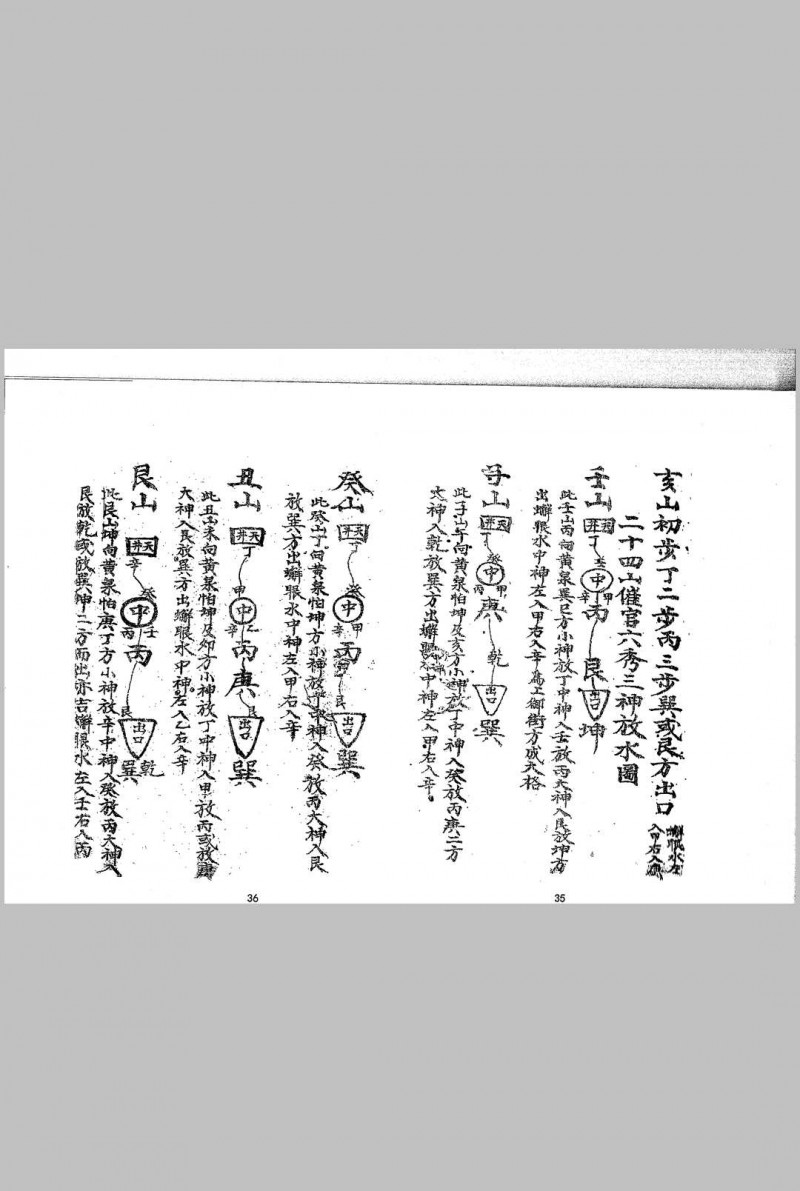 亥山初步丁二步丙三步巽或艮方出口
蠏眼水左
入甲右入
二十四山催官六秀三神放水圖
壬山
天井
丁
壬
中
甲
辛
丙
艮
出口
坤
此壬山丙向黃泉巽巳方小神放丁中神入壬放丙大神入艮放坤方
出蠏眼水中神左入甲右入辛為上御街方成大格
子山
天井
丁
癸
中
甲
辛
庚
乾
出口
巽
此子山午向黃泉怕坤及亥方小神放丁中神入癸放丙庚二方
大神入乾放巽方出蠏眼水中神左入甲右入辛
癸山
天井
丁
癸
中
甲
辛
丙
艮
出口
巽
此癸山丁向黃泉怕坤方小神放丁中神入癸放丙大神入艮
放巽方出蠏眼水中神左入甲右入辛
丑山
天井
丁
甲
中
乙
辛
丙庚
艮
出口
巽
此丑山未向黃泉怕坤及卯方小神放丁中神入甲放丙或放庚
大神入艮放巽方出蠏眼水中神左入乙右入辛
艮山
天井
辛
癸
中
壬
丙
丙
艮
出口
乾
巽
此艮山坤向黃泉怕庚丁方小神放辛中神入癸放丙大神入
艮放乾或放巽坤二方而出亦吉蠏眼水左入壬右入丙
36
35